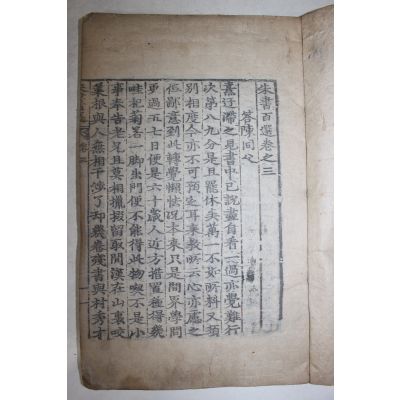 朱書百選卷之三
答陳同父
熹迂滯之見書中已說盡自看一過亦覺難行
次第八九分是且罷休矣萬一不如所料又須
別相度今亦不可預定耳來敎所云心亦慮之
但鄙意到此轉覺懶怯況本來只是間界學問
更過五七日便是六十歲人近方措置種得幾
畦杞菊若一脚出門便不能得此物喫不是小
事奉告老兄且莫相攛掇留取閒漢在山裏咬
菜根與人無相干涉了却幾卷殘書與村秀才